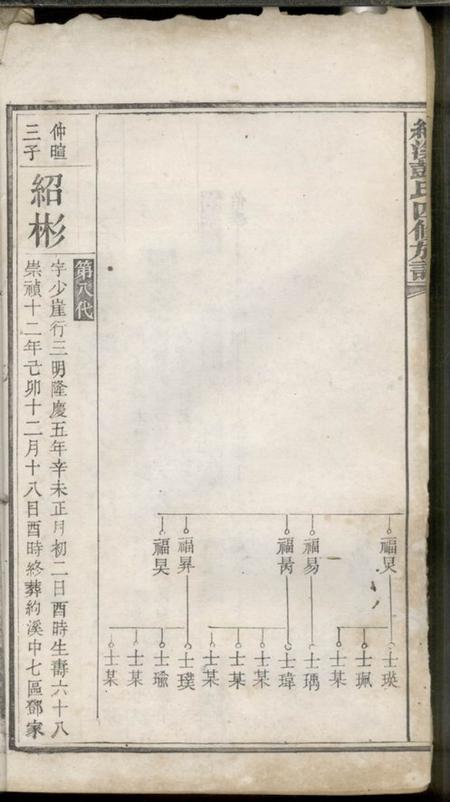 約溪彭氏四修族譜
福炅
福易
福昺
福昇
福昊
士瑛
士珮
士某
士瑀
士瑋
士某
士某
士某
士璞
士瑜
士某
士某
第八代
仲暄三子
紹彬
字少崖行三明隆慶五年辛未正月初二日酉時生壽六十八
崇禎十二年己卯十二月十八日酉時終葬約溪中七區鄧家